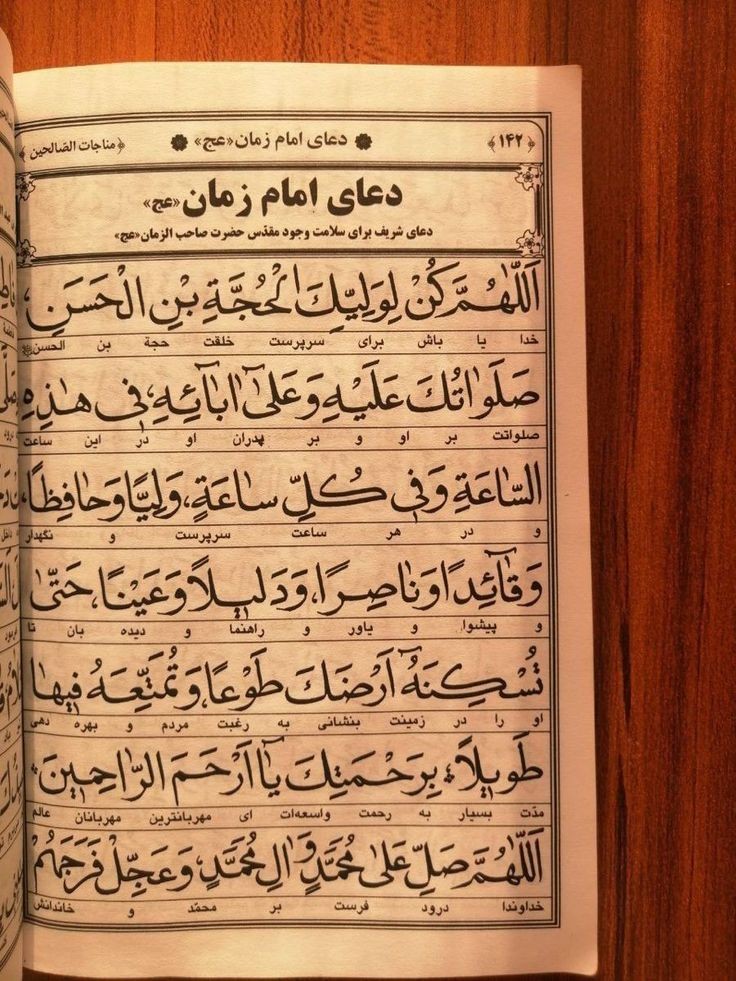 ﴿۱۴۲﴾ دعای امام زمان «عج» ﴿مناجات الصّالحین﴾
دعای امام زمان «عج»
دعای شریف برای سلامت وجود مقدّس حضرت صاحب الزمان «عج»
اَللّٰهُمَّ کُنْ لِوَلِیِّکَ الْحُجَّةِ بْنِ الْحَسَنِ،
خدا یا باش برای سرپرست خلقت حجة بن الحسن
صَلَواتُکَ عَلَیْهِ وَ عَلیٰٓ اٰبآئِهِ، فی هٰذِهِ
صلواتت بر او و بر پدران او در این ساعت
السّاعَةِ وَ فی کُلِّ ساعَةٍ، وَلِیًّا وَ حافِظًا،
و در هر ساعت سرپرست و نگهدار
وَ قآئِدًا وَ ناصِرًا، وَ دَلیلاً وَ عَیْنًا، حَتّیٰ
و پیشوا و یاور و راهنما و دیده بان تا
تُسْکِنَهُٓ اَرْضَکَ طَوْعًا، وَ تُمَتِّعَهُ فیها
او را در زمینت بنشانی به رغبت مردم و بهره دهی
طَویلاً، بِرَحْمَتِکَ یآ اَرْحَمَ الرّاحِمینَ
مدّت بسیار به رحمت واسعه‌ات ای مهربانترین مهربانان عالم
اَللّٰهُمَّ صَلِّ عَلیٰ مُحَمَّدٍ وَ اٰلِ مُحَمَّدٍ، وَ عَجِّلْ فَرَجَهُمْ
خداوندا درود فرست بر محمّد و خاندانش